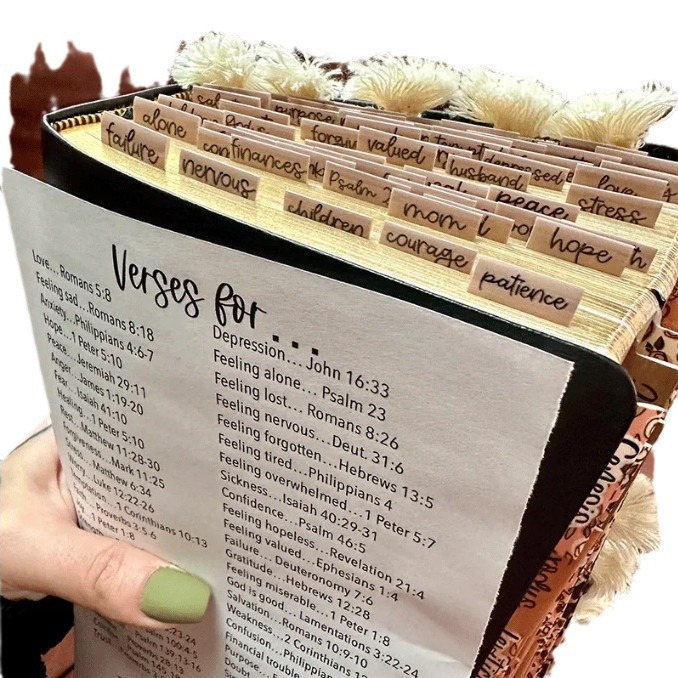 purpose
alone
valued
depressed
love
failure
finances
husband
nervous
Psalm
peace
stress
children
mom
hope
courage
patience
Verses for...
Love... Romans 5:8
Feeling sad...Romans 8:18
Anxiety...Philippians 4:6-7
Hope...1 Peter 5:10
Peace...Jeremiah 29:11
Anger...James 1:19-20
Fear...Isaiah 41:10
Healing...1 Peter 5:10
Rest...Matthew 11:28-30
Forgiveness...Mark 11:25
Stress...Matthew 6:34
Worry...Luke 12:22-26
Temptation...1 Corinthians 10:13
Proverbs 3:5-6
1 Peter 1:8
Psalm 100:4-5
Psalm 139:13-16
Proverbs 28:13
Trust
Depression... John 16:33
Feeling alone... Psalm 23
Feeling lost... Romans 8:26
Feeling nervous...Deut. 31:6
Feeling forgotten...Hebrews 13:5
Feeling tired...Philippians 4
Feeling overwhelmed...1 Peter 5:7
Sickness...Isaiah 40:29-31
Confidence...Psalm 46:5
Feeling hopeless...Revelation 21:4
Feeling valued...Ephesians 1:4
Failure... Deuteronomy 7:6
Gratitude...Hebrews 12:28
Feeling miserable...1 Peter 1:8
God is good... Lamentations 3:22-24
Salvation...Romans 10:9-10
Weakness...2 Corinthians 12
Confusion...Philippian
Financial trouble
Purpose...
Doubt